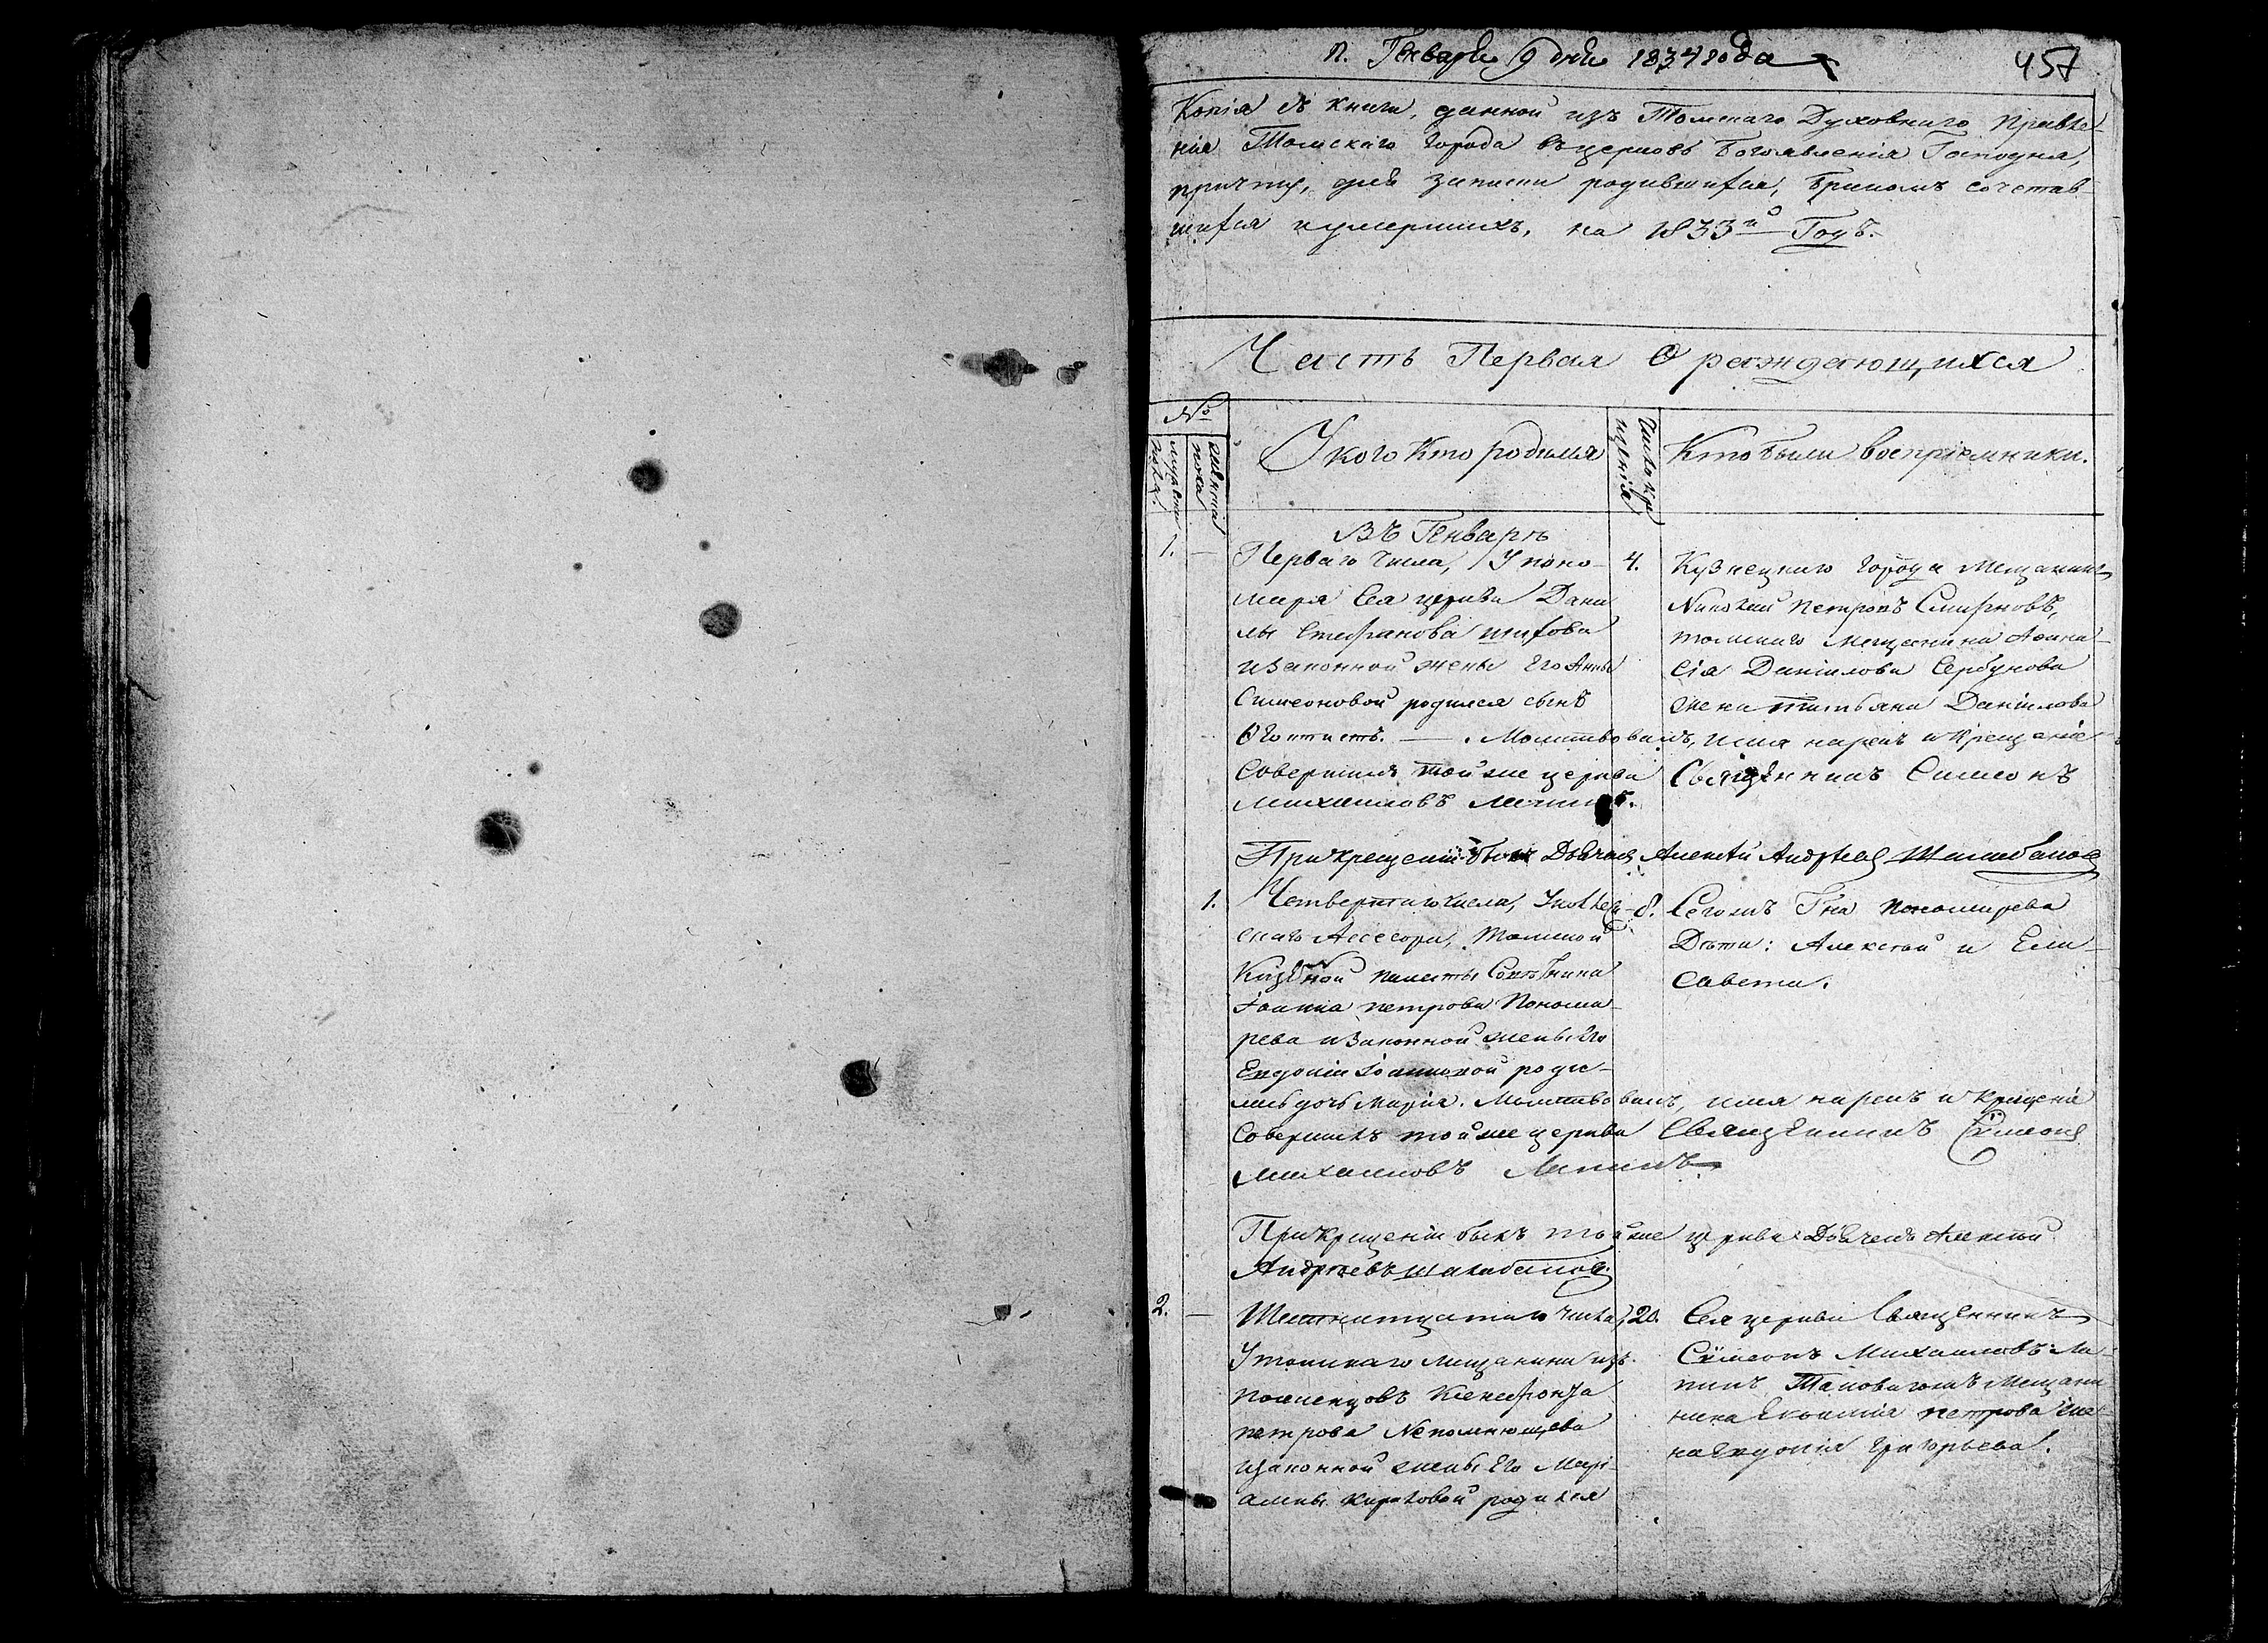 п. Генваря 9 дня 1834 года
457
Копія съ книги, данной изъ Томскаго Духовнаго Правле-
нія Томскаго города въ церковь Богоявленія Господня,
причту, для записи родившихся, бракомъ сочетав-
шихся и умершихъ, на 1833й Годъ.
Часть Первая О раждающихся
№
мужеска пола.
женска пола
У кого кто родился
Число крещенія
Кто были воспріемники.
Въ Генварѣ
1. — Перваго числа, У поно-
маря сея церкви Дани
лы Стефанова
и законной жены Его Анны
Симеоновой родился сынъ
4. Кузнецкаго города мещанинъ
Николай Петровъ Смирновъ,
томскаго мещанина Афана-
сія Даніилова Сербунова
жена Татьяна Данилова
Феоктистъ. — . Молитвовалъ, имя нарекъ и крещеніе
Совершилъ той же церкви Священникъ Симеонъ
Михаиловъ
При крещеніи былъ Дьячекъ Алексѣй Андреевъ Шалабановъ
1. Четвертаго числа, У коллеж-
скаго Ассесора, Томской
Казенной палаты Совѣтника
Іоанна Петрова Понома-
рева и законной жены Его
Евдокіи Іоанновой роди-
8. Егожъ Гна Пономарева
Дѣти: Алексѣй и Ели-
савета.
лась дочь Марія. Молитвовалъ, имя нарекъ и крещеніе
Совершилъ той же церкви Священникъ Симеонъ
Михаиловъ Лапинъ
При крещеніи былъ той же церкви Дьячекъ Алексѣй
Андрѣевъ Шалабановъ.
2. — Шестнатцатаго числа,
У томскаго мещанина изъ
Ксенофонта
петрова Непомнющева
и законной жены Его Марі-
амны Кириловой родился
20. Сея церкви Священникъ
Симеонъ Михаиловъ Ла-
пинъ Таковагожъ Мещани
нина Евфимія петрова же-
на Евдокія Григорьева.